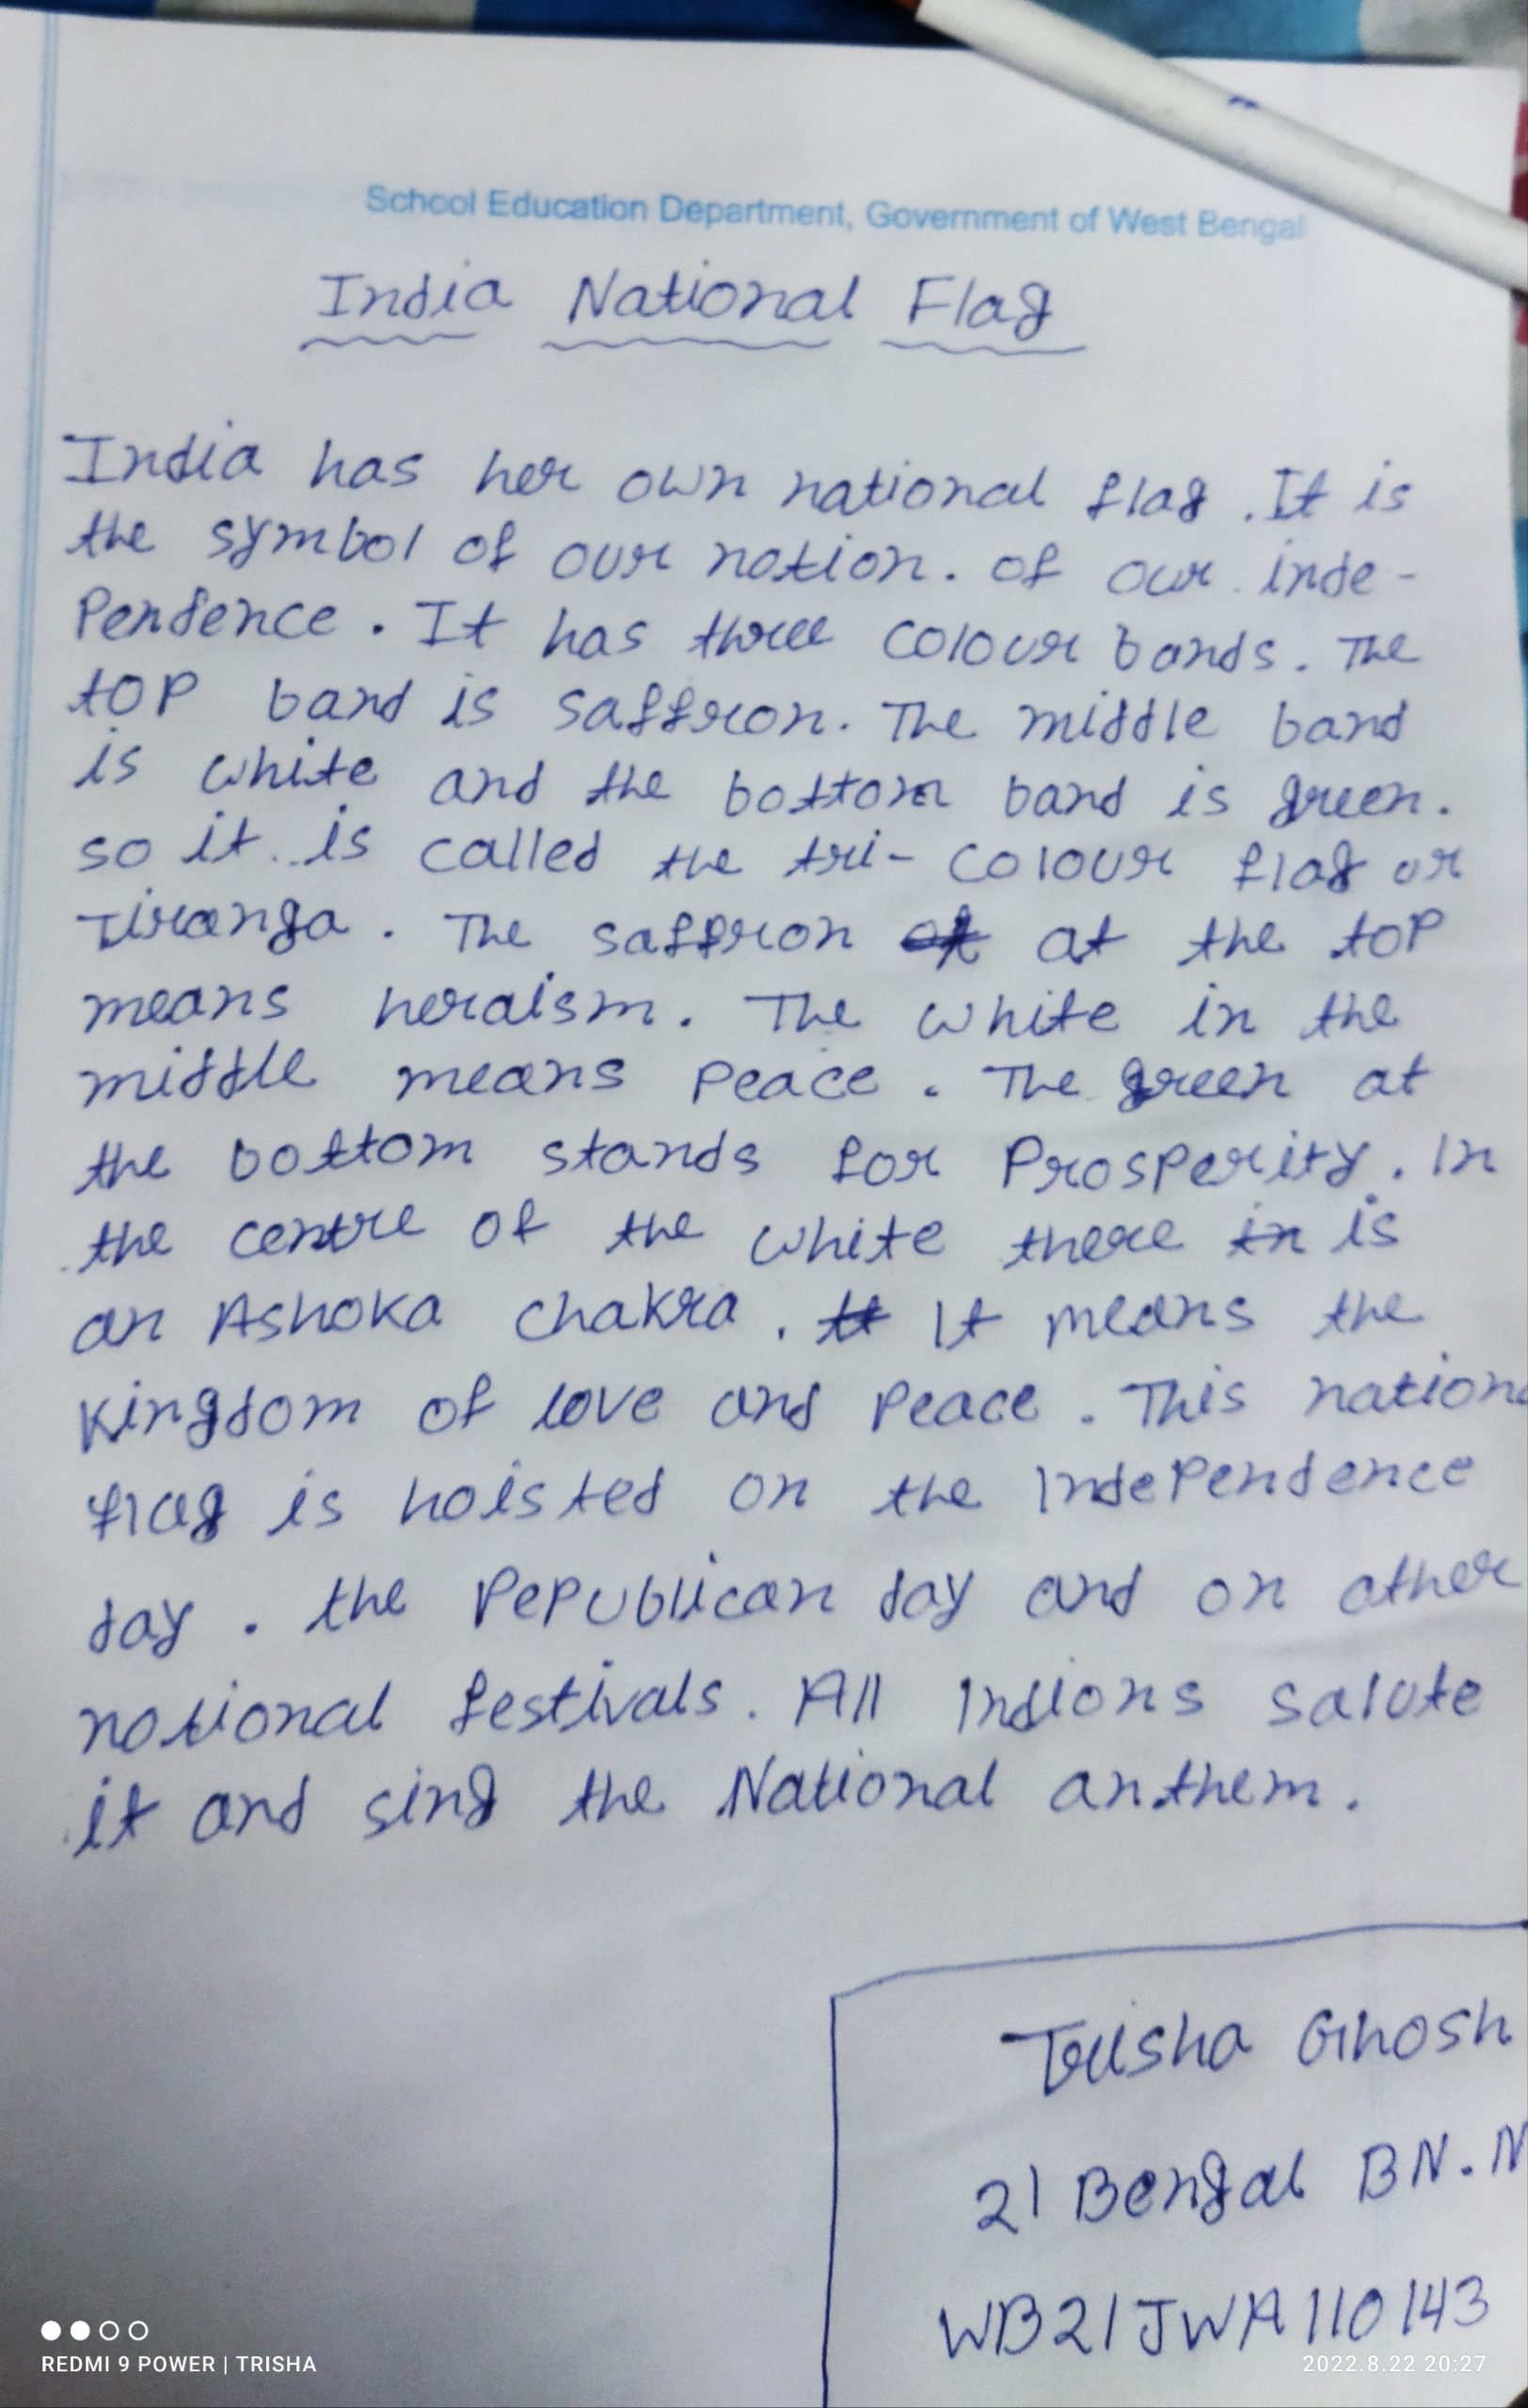 School Education Department, Government of West Bengal
India National Flag
India has her own national flag. It is
the symbol of our nation. of our inde-
Pendence. It has three colour bands. The
top band is saffron. The middle band
is white and the bottom band is green.
so it is called the tri-colour flag or
Tiranga. The saffron at at the top
means heraism. The white in the
middle means peace. The green at
the bottom stands for Prosperity. In
the centre of the white there in is
an Ashoka chakra. It It means the
kingdom of love and peace. This nationa
flag is hoisted on the Independence
day. the Pepublican day and on other
national festivals. All Indians salute
it and sing the National anthem.
Trisha Ghosh
21 Bengal BN. N
WB21JWA110143
REDMI 9 POWER | TRISHA
2022.8.22 20:27